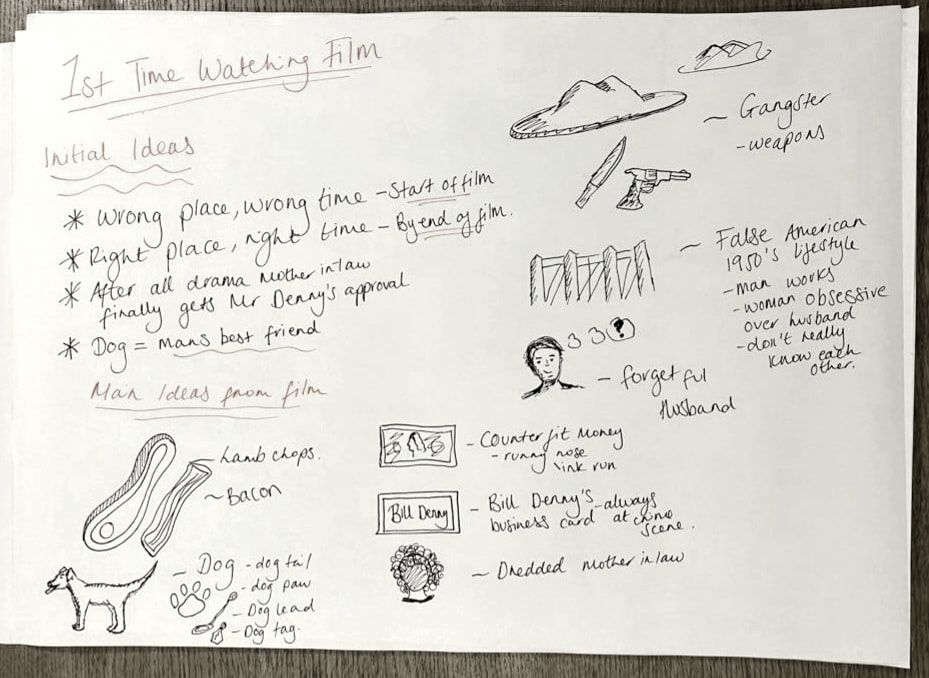 1st Time Watching Film
Initial Ideas
* Wrong place, wrong time - Start of film
* Right place, right time - By end of film.
* After all drama Mother in law
finally gets Mr Denny's approval
* Dog = mans best friend
Main Ideas from film
- Lamb chops.
~ Bacon
- Dog - dog tail
- dog paw
- Dog lead
- Dog tag.
~ Gangster
- weapons
~ False American
1950's lifestyle
- man works
- woman obsessive
over husband
- don't really
know each
other.
?
- forgetful
Husband
- Counterfit Money
- runny nose
ink run
Bill Denny
- Bill Denny's - always
business card at crime
scene.
~ Dredded mother in law